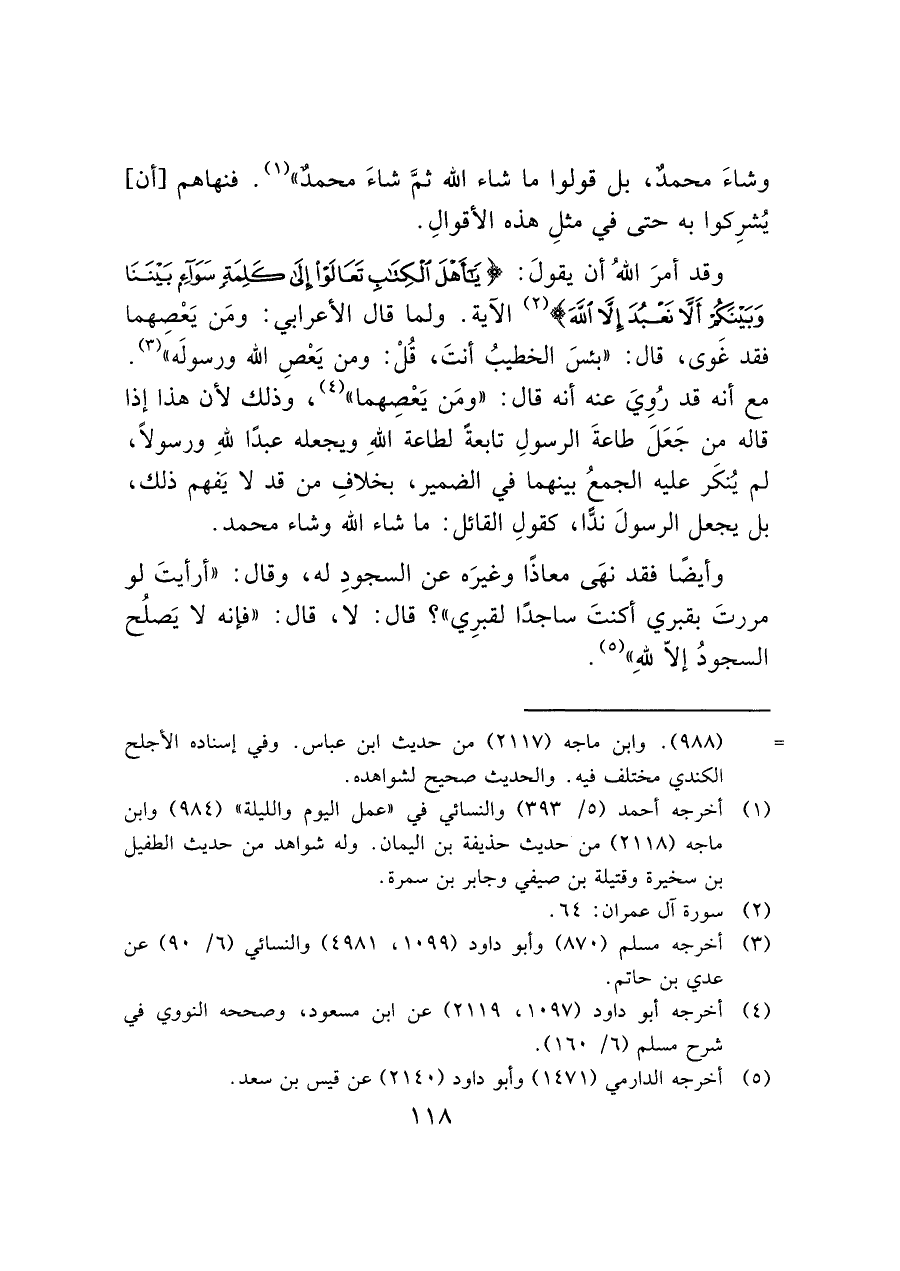 وشاءَ محمدٌ، بل قولوا ما شاء الله ثمَّ شاءَ محمدٌ»(١). فنهاهم [أن]
يُشرِكوا به حتى في مثلِ هذه الأقوالِ.
وقد أمرَ اللهُ أن يقولَ: ﴿يَٰٓأَهْلَ ٱلْكِتَٰبِ تَعَالَوْا۟ إِلَىٰ كَلِمَةٍ سَوَآءٍۭ بَيْنَنَا
وَبَيْنَكُمْ أَلَّا نَعْبُدَ إِلَّا ٱللَّهَ﴾(٢) الآية. ولما قال الأعرابي: ومَن يَعْصِهما
فقد غَوى، قال: «بئسَ الخطيبُ أنتَ، قُلْ: ومن يَعْصِ الله ورسولَه»(٣).
مع أنه قد رُوِيَ عنه أنه قال: «ومَن يَعْصِهما»(٤)، وذلك لأن هذا إذا
قاله من جَعَلَ طاعةَ الرسولِ تابعةً لطاعة اللهِ ويجعله عبدًا للهِ ورسولاً،
لم يُنكَر عليه الجمعُ بينهما في الضمير، بخلافِ من قد لا يَفهم ذلك،
بل يجعل الرسولَ ندًّا، كقولِ القائل: ما شاء الله وشاء محمد.
وأيضًا فقد نهَى معاذًا وغيرَه عن السجودِ له، وقال: «أرأيتَ لو
مررتَ بقبري أكنتَ ساجدًا لقبرِي»؟ قال: لا، قال: «فإنه لا يَصلُح
السجودُ إلاّ للهِ»(٥).
= (٩٨٨). وابن ماجه (٢١١٧) من حديث ابن عباس. وفي إسناده الأجلح
الكندي مختلف فيه. والحديث صحيح لشواهده.
(١) أخرجه أحمد (٥/ ٣٩٣) والنسائي في «عمل اليوم والليلة» (٩٨٤) وابن
ماجه (٢١١٨) من حديث حذيفة بن اليمان. وله شواهد من حديث الطفيل
بن سخيرة وقتيلة بن صيفي وجابر بن سمرة.
(٢) سورة آل عمران: ٦٤.
(٣) أخرجه مسلم (٨٧٠) وأبو داود (١٠٩٩، ٤٩٨١) والنسائي (٦/ ٩٠) عن
عدي بن حاتم.
(٤) أخرجه أبو داود (١٠٩٧، ٢١١٩) عن ابن مسعود، وصححه النووي في
شرح مسلم (٦/ ١٦٠).
(٥) أخرجه الدارمي (١٤٧١) وأبو داود (٢١٤٠) عن قيس بن سعد.
١١٨